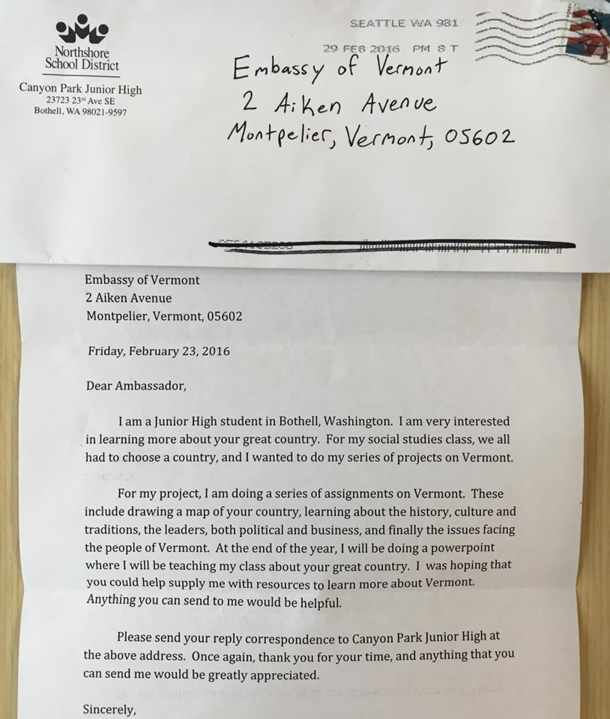 Northshore
School District
Canyon Park Junior High
23723 23rd Ave SE
Bothell, WA 98021-9597
SEATTLE WA 981
29 FEB 2016 PM 8 T
Embassy of Vermont
2 Aiken Avenue
Montpelier, Vermont, 05602
Embassy of Vermont
2 Aiken Avenue
Montpelier, Vermont, 05602
Friday, February 23, 2016
Dear Ambassador,
I am a Junior High student in Bothell, Washington. I am very interested
in learning more about your great country. For my social studies class, we all
had to choose a country, and I wanted to do my series of projects on Vermont.
For my project, I am doing a series of assignments on Vermont. These
include drawing a map of your country, learning about the history, culture and
traditions, the leaders, both political and business, and finally the issues facing
the people of Vermont. At the end of the year, I will be doing a powerpoint
where I will be teaching my class about your great country. I was hoping that
you could help supply me with resources to learn more about Vermont.
Anything you can send to me would be helpful.
Please send your reply correspondence to Canyon Park Junior High at
the above address. Once again, thank you for your time, and anything that you
can send me would be greatly appreciated.
Sincerely,